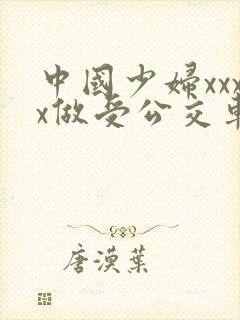 中國少婦xxx
x做受公交車
唐漠葉